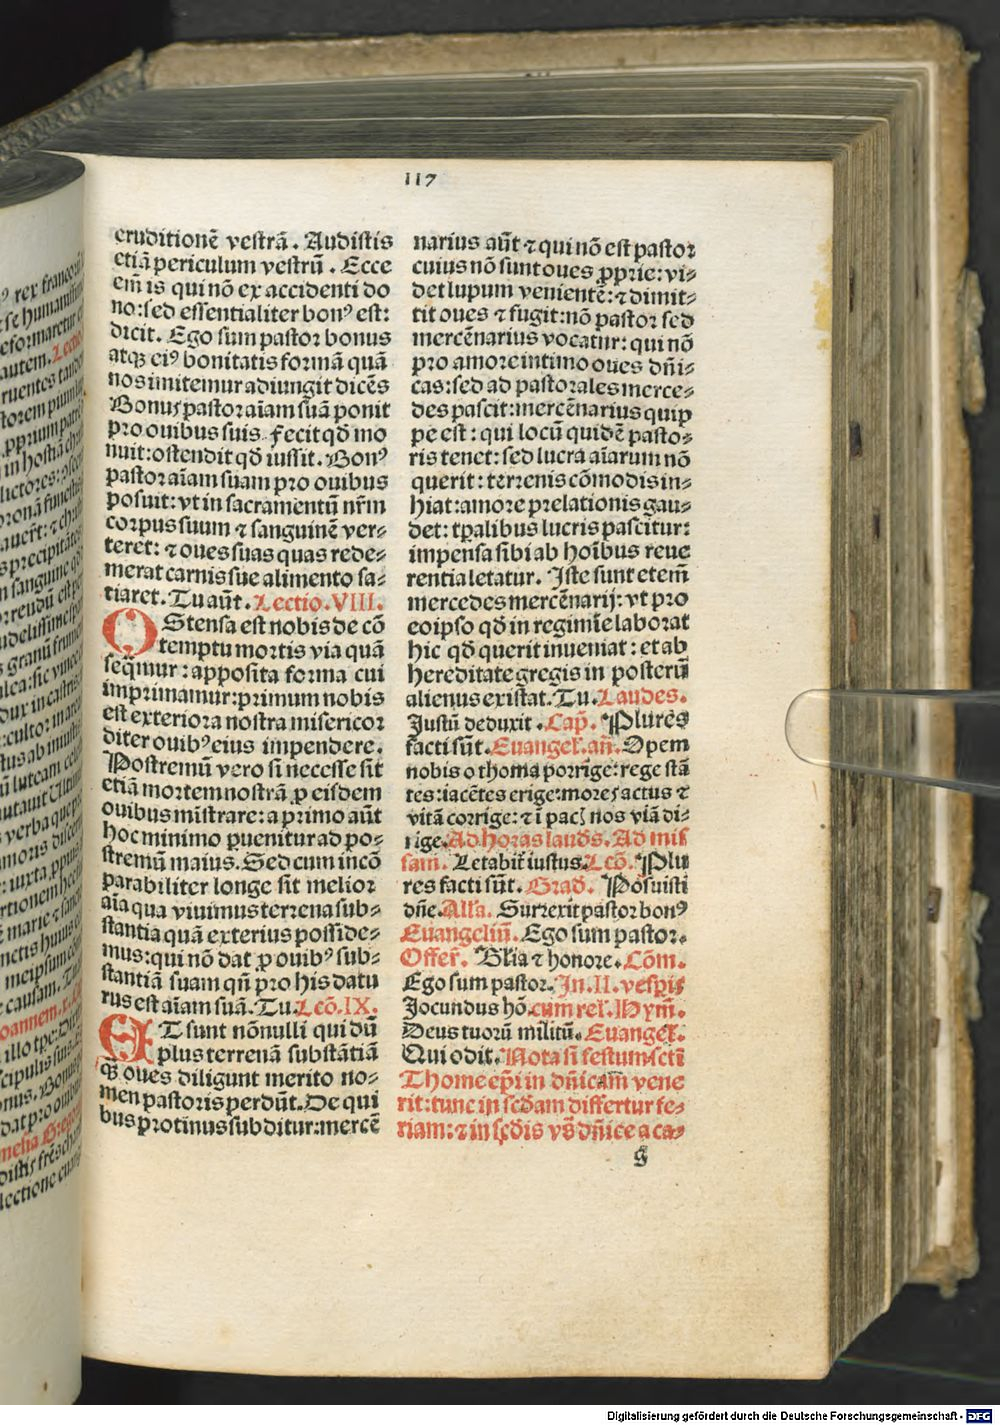 117
eruditionē vestrā. Audistis
etiā periculum vestrū. Ecce
em̄ is qui nō ex accidenti do
no: sed essentialiter bonꝰ est:
dicit. Ego sum pastor bonus
atqꝫ eiꝰ bonitatis formā quā
nos imitemur adiungit dicēs
Bonus pastor aīam suā ponit
pro ouibus suis. fecit qd̄ mo
nuit: ostendit qd̄ iussit. Bonꝰ
pastor aīam suam pro ouibus
posuit: vt in sacramentū nr̄m
corpus suum ⁊ sanguinē ver⸗
teret: ⁊ oues suas quas rede⸗
merat carnis sue alimento sa⸗
tiaret. Tu aūt. Lectio. VIII.
OStensa est nobis de cō
temptu mortis via quā
seqꝫmur: apposita forma cui
imprimamur: primum nobis
est exteriora nostra misericor
diter ouibꝰ eius impendere.
Postremū vero si necesse sit
etiā mortem nostrā ꝓ eisdem
ouibus mīstrare: a primo aūt
hoc minimo puenitur ad po⸗
stremū maius. Sed cum incō
parabiliter longe sit melior
aīa qua viuimus terrena sub⸗
stantia quā exterius posside⸗
mus: qui nō dat ꝓ ouibꝰ sub⸗
stantiā suam qn̄ pro his datu
rus est aīam suā. Tu. Lcō. IX.
ET sunt nōnulli qui dū
plus terrenā substātiā
qꝫ oues diligunt merito no⸗
men pastoris perdūt. De qui
bus protinus subditur: mercē
narius aūt ⁊ qui nō est pastor
cuius nō sunt oues ꝓprie: vi⸗
det lupum venientē: ⁊ dimit⸗
tit oues ⁊ fugit: nō pastor sed
mercēnarius vocatur: qui nō
pro amore intimo oues dn̄i⸗
cas: sed ad pastorales merce⸗
des pascit: mercēnarius quip
pe est: qui locū quidē pasto⸗
ris tenet: sed lucra aīarum nō
querit: terrenis cōmodis in⸗
hiat: amore prelationis gau⸗
det: tp̄alibus lucris pascitur:
impensa sibi ab hoībus reue
rentia letatur. Iste sunt etem̄
mercedes mercēnarij: vt pro
eo ipso qd̄ in regimīe laborat
hic qd̄ querit inueniat: et ab
hereditate gregis in posterū
alienus existat. Tu. Laudes.
Justū deduxit. Cap̄. Plures
facti sūt. Euangel̄. an̄. Opem
nobis o thoma porrige: rege stā
tes: iacētes erige: mores actus ⁊
vitā corrige: ⁊ ī pacꝭ nos viā di⸗
rige. Ad horas laud̄s. Ad mis
sam. Letabit̄ iustus. Lcō. Plu
res facti sūt. Grad̄. Posuisti
dn̄e. Alla. Surrexit pastor bonꝰ
Euangeliū. Ego sum pastor.
Offer̄. Gl̄ia ⁊ honore. Cōm.
Ego sum pastor. In. II. vesp̄is
Jocundus hō. cum rel̄. Hym̄.
Deus tuorū militū. Euangel̄.
Qui odit. Nota si festum sctī
Thome ep̄i in dn̄icam vene
rit: tunc in scd̄am differtur fe⸗
riam: ⁊ in scd̄is vs̄ dn̄ice a ca⸗
g
Digitalisierung gefördert durch die Deutsche Forschungsgemeinschaft - DFG